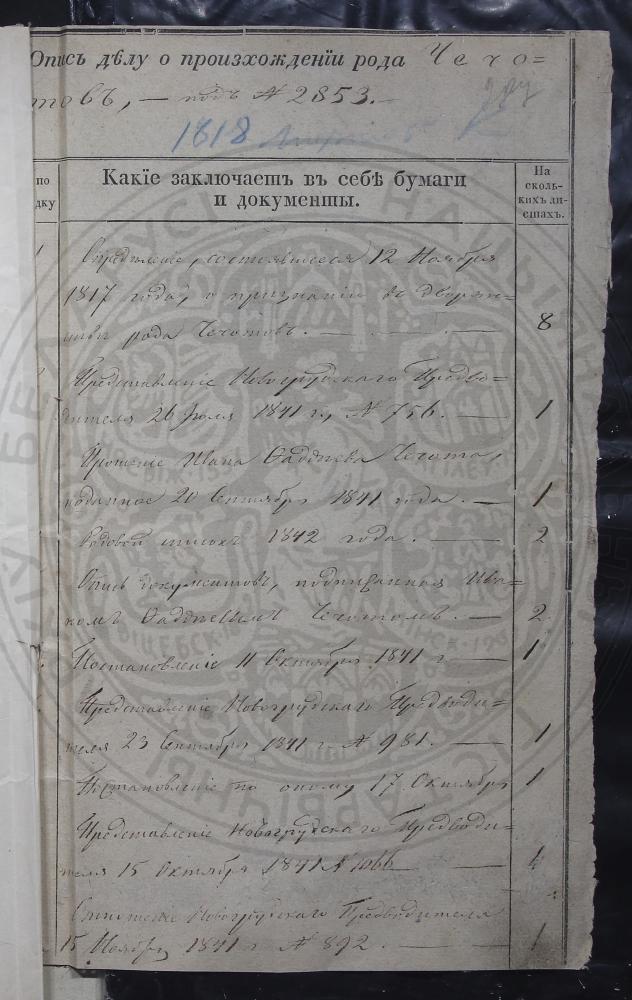 Опись дѣлу о произхожденіи рода Чечо=
товъ, — подъ № 2853. —
1818
по
дку
Какіе заключаетъ въ себѣ бумаги
и документы.
На
сколь-
кихъ ли-
стахъ.
1
Опредѣленіе, состоявшееся 12 Ноября
1817 года, о признаніи въ дворян-
ствѣ рода Чечотовъ. — — — 8
Представленіе Новогрудскаго Предво=
дителя 26 Іюля 1841 г., № 756. — 1
Прошеніе Ивана Фаддѣева Чечота,
поданное 20 Сентября 1841 года. — 1
Родовой списокъ 1842 года. — 2
Опись документовъ, подписанная Ива=
комъ Фаддѣевымъ Чечотомъ. — 2
Постановленіе 11 Октября 1841 г. — 1
Представленіе Новогрудскаго Предводи=
теля 23 Сентября 1841 г. № 981. — 1
Постановленіе по оному 17 Октября 1
Представленіе Новогрудскаго Предводи-
теля 15 Октября 1841 № 1066 — 4
Новогрудскаго Предводителя
15 Ноября 1841 г. № 892. — — 1